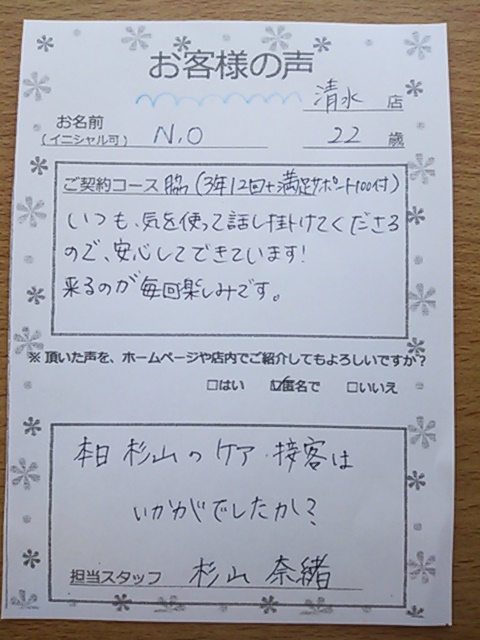 お客様の声
清水 店
お名前
(イニシャル可) N.O 22 歳
ご契約コース 脇 (3年12回+満足サポート100付)
いつも、気を使って話し掛けてくださる
ので、安心してできています!
来るのが毎回楽しみです。
※ 頂いた声を、ホームページや店内でご紹介してもよろしいですか?
□はい ☑匿名で □いいえ
本日 杉山のケア・接客は
いかがでしたか?
担当スタッフ 杉山 奈緒